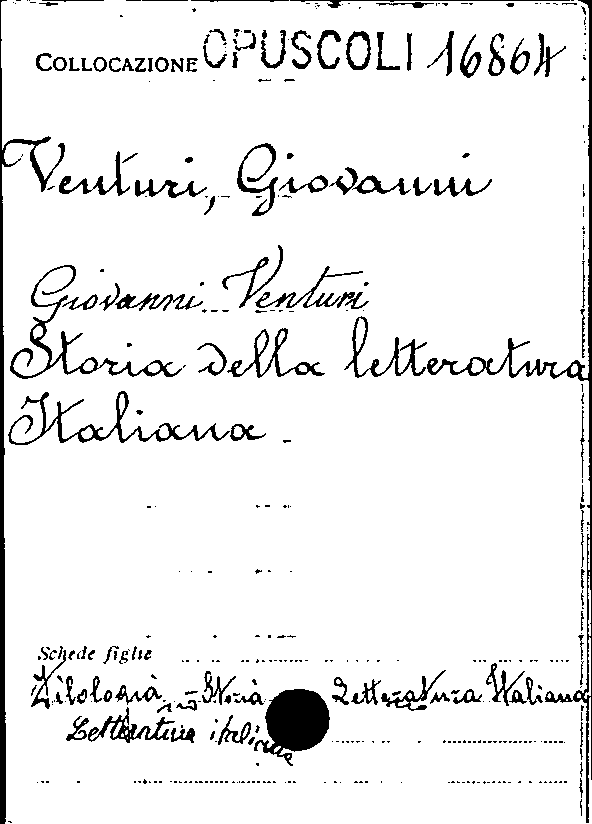 COLLOCAZIONE OPUSCOLI 16864
Venturi, Giovanni
Giovanni Venturi
Storia della letteratura
Italiana
Schede figlie
Filologia = Storia Letteratura Italiana
Letteratura italiana